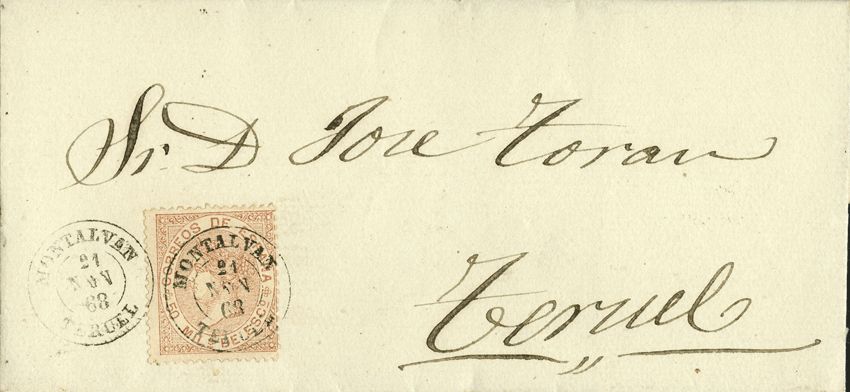 Sr. D Jose Toran
Teruel
MONTALVAN
21
NOV
68
TERUEL
CORREOS DE ESPAÑA
50 MIL
DE ESCO
MONTALVAN
21
NOV
68